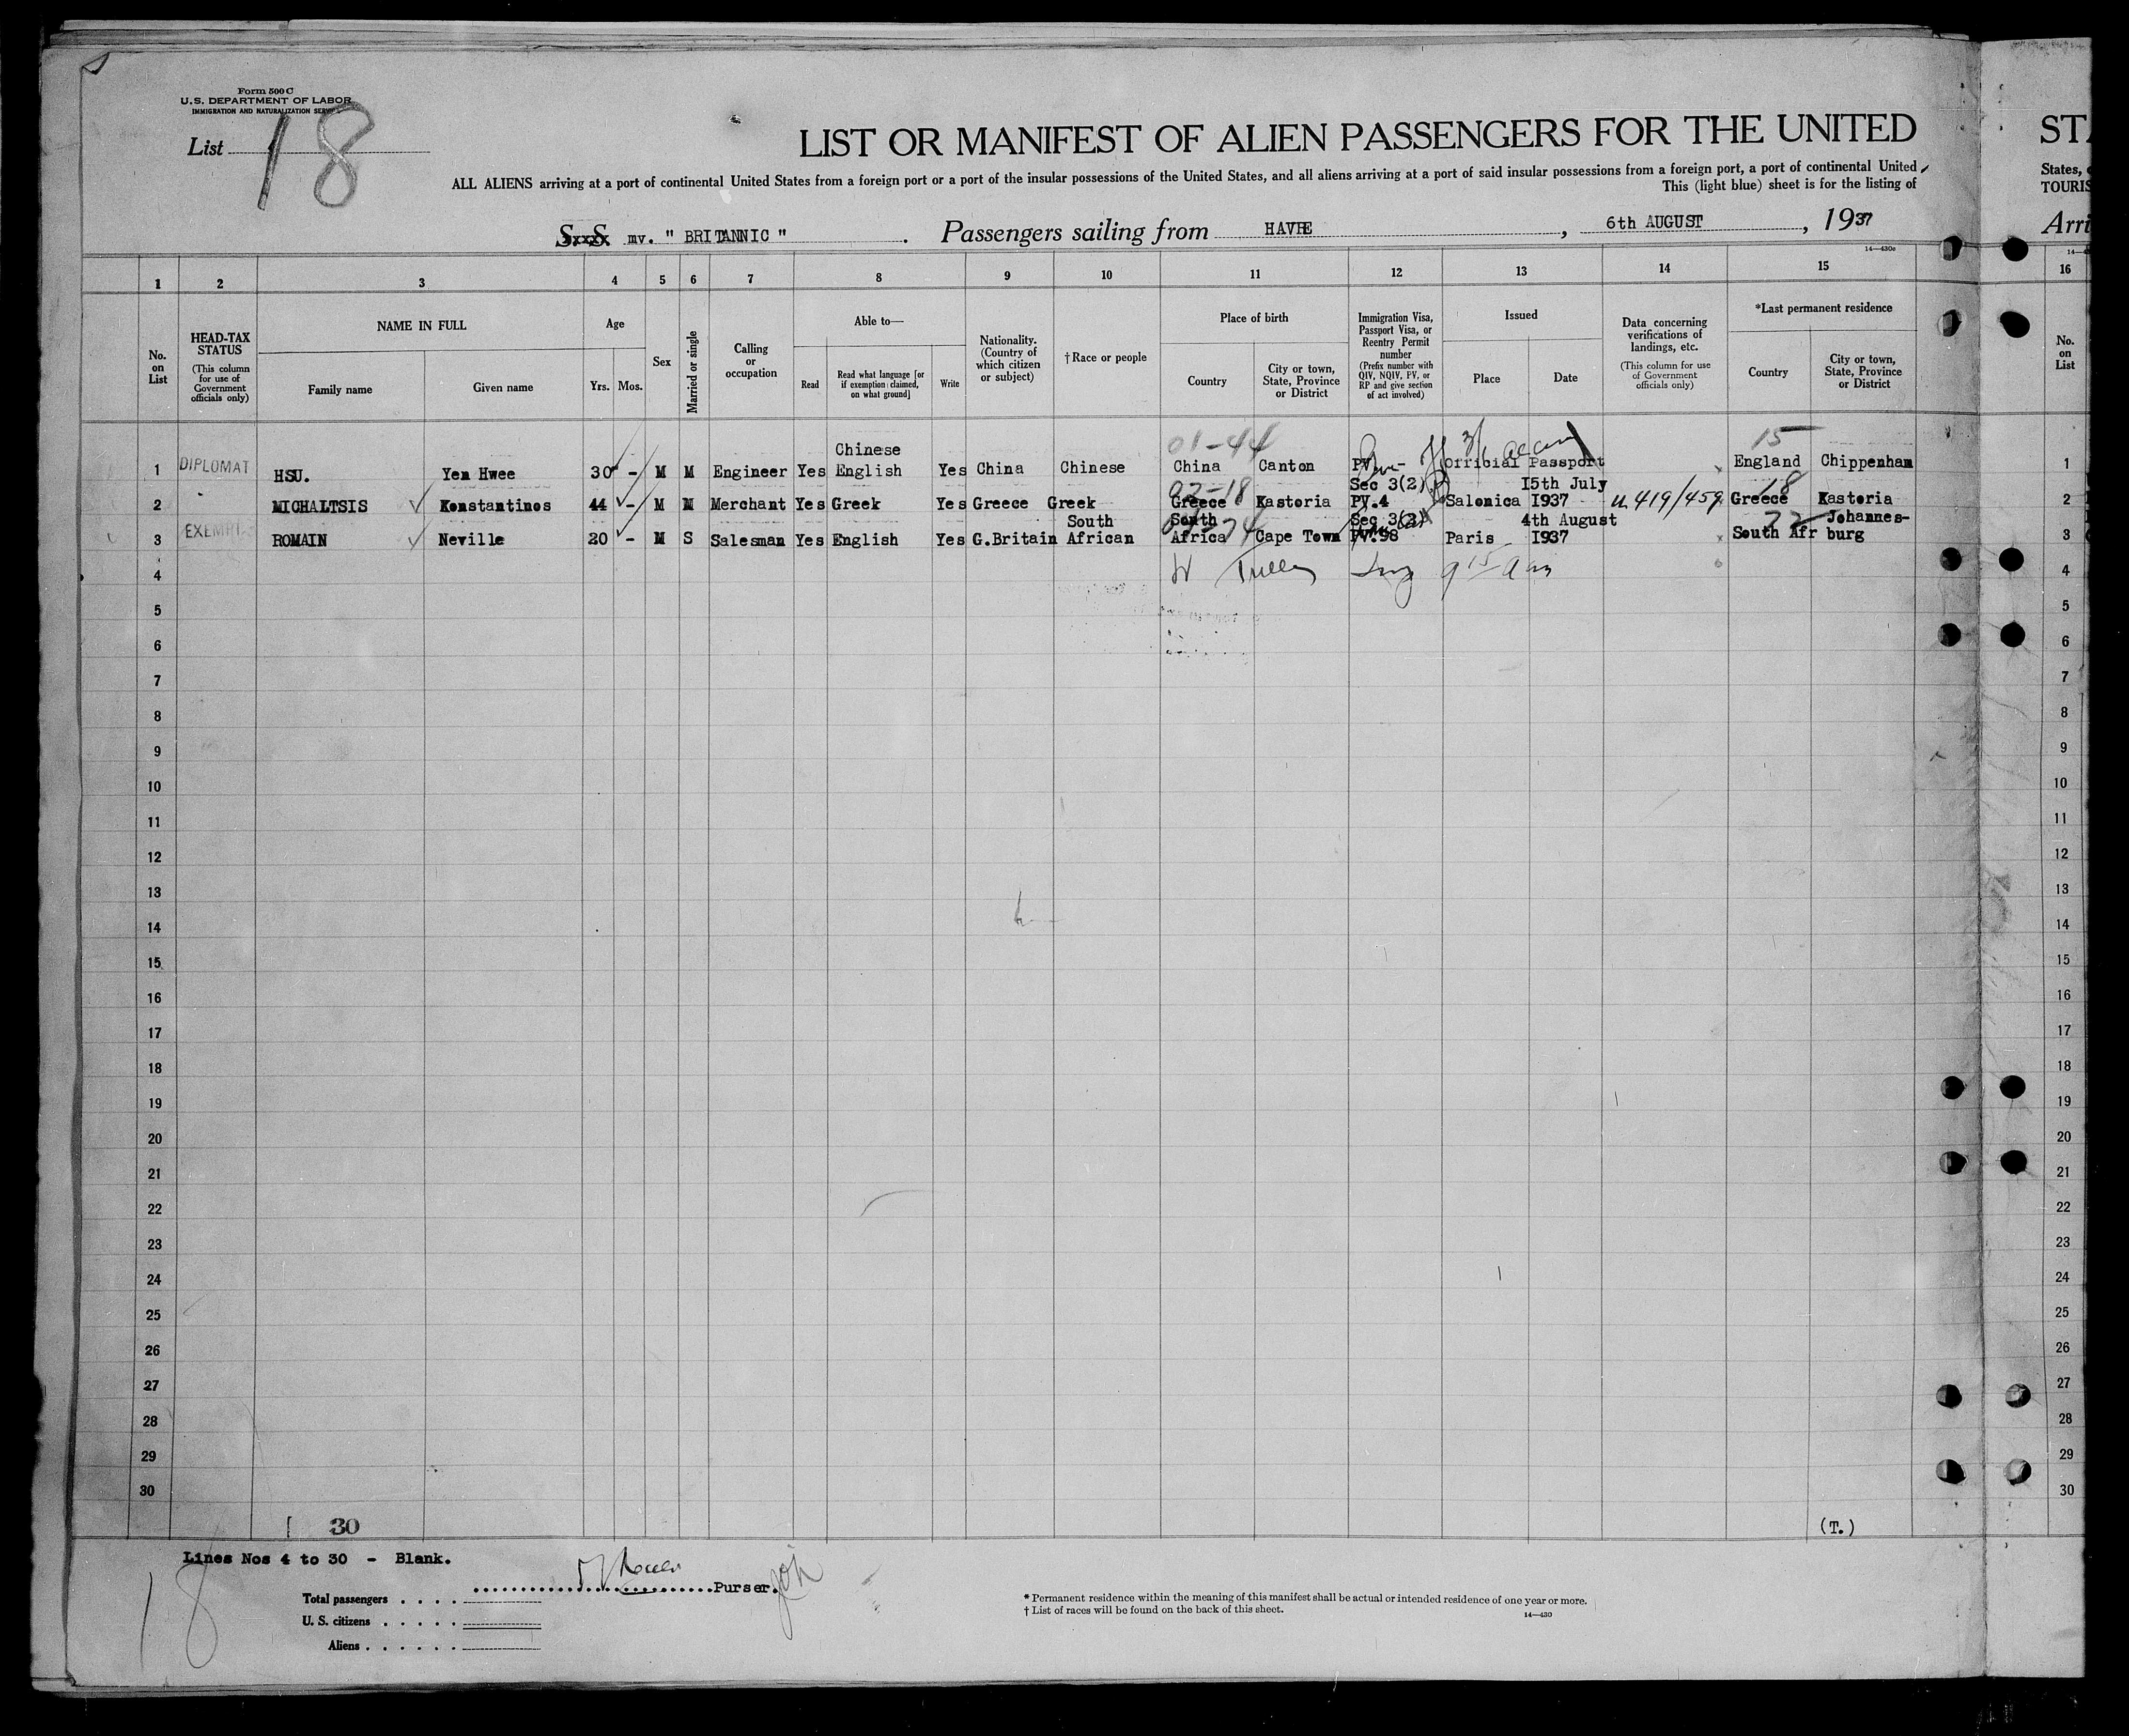 Form 500 C
U.S. DEPARTMENT OF LABOR
IMMIGRATION AND NATURALIZATION SERVICE
List 18
LIST OR MANIFEST OF ALIEN PASSENGERS FOR THE UNITED
ST
ALL ALIENS arriving at a port of continental United States from a foreign port or a port of the insular possessions of the United States, and all aliens arriving at a port of said insular possessions from a foreign port, a port of continental United
States,
This (light blue) sheet is for the listing of
TOURIS
S.S. mv. " BRITANNIC ". Passengers sailing from HAVRE, 6th AUGUST, 1937
Arri
14—430c
1 2 3 4 5 6 7 8 9 10 11 12 13 14 15 16
No. on List
HEAD-TAX STATUS
(This column for use of Government officials only)
NAME IN FULL
Family name Given name
Age
Yrs. Mos.
Sex
Married or single
Calling or occupation
Able to—
Read
Read what language [or if exemption claimed, on what ground]
Write
Nationality. (Country of which citizen or subject)
†Race or people
Place of birth
Country
City or town, State, Province or District
Immigration Visa, Passport Visa, or Reentry Permit number
(Prefix number with QIV, NQIV, PV, or RP and give section of act involved)
Issued
Place Date
Data concerning verifications of landings, etc.
(This column for use of Government officials only)
*Last permanent residence
Country
City or town, State, Province or District
No. on List
01-44 15
Chinese
1 DIPLOMAT HSU. Yen Hwee 30 - M M Engineer Yes English Yes China Chinese China Canton PV.- Official Passport England Chippenham 1
02-18 Sec 3(2) 15th July 18
2 MICHALTSIS Konstantinos 44 - M M Merchant Yes Greek Yes Greece Greek Greece Kastoria PV.4 Salonica I937 U419/459 Greece Kastoria 2
South South Sec 3(2) 4th August Johannes-
3 EXEMPT ROMAIN Neville 20 - M S Salesman Yes English Yes G.Britain African Africa Cape Town PV.98 Paris I937 South Afr burg 3
4 4
5 5
6 6
7 7
8 8
9 9
10 10
11 11
12 12
13 13
14 14
15 15
16 16
17 17
18 18
19 19
20 20
21 21
22 22
23 23
24 24
25 25
26 26
27 27
28 28
29 29
30 30
30
(T.)
Lines Nos 4 to 30 - Blank.
Purser.
18
Total passengers
U. S. citizens
Aliens
* Permanent residence within the meaning of this manifest shall be actual or intended residence of one year or more.
† List of races will be found on the back of this sheet.
14—430